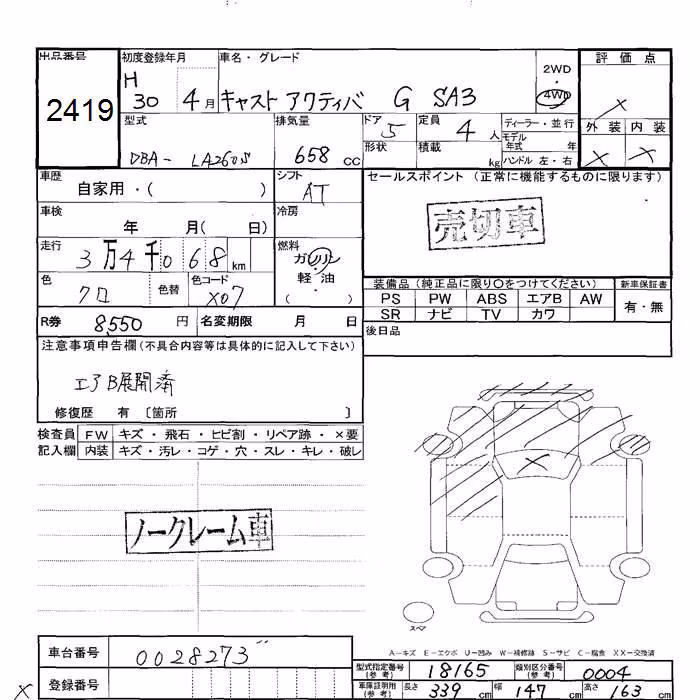 出品番号 初度登録年月 車名・グレード 評価点
2419 H 30 4月 キャスト アクティバ G SA3 2WD ・ 4WD ×
型式 排気量 ドア 定員 ディーラー・並行 外装 内装
DBA- LA260S 658 cc 5 4人 モデル年式 年 × ×
形状 積載 kg ハンドル 左・右
車歴 シフト セールスポイント (正常に機能するものに限ります)
自家用・( ) AT
売切車
車検 冷房
年 月( 日)
走行 燃料
3万4千068km ガソリン
軽・油
( )
色 色替 色コード
クロ X07
装備品 (純正品に限り○をつけてください) 新車保証書
PS PW ABS エアB AW 有・無
SR ナビ TV カワ
R券 8,550 円 名変期限 月 日
後日品
注意事項申告欄(不具合内容等は具体的に記入して下さい)
エアB展開済
修復歴 有 〔箇所 〕
検査員 FW キズ・飛石・ヒビ割・リペア跡・×要
記入欄 内装 キズ・汚レ・コゲ・穴・スレ・キレ・破レ
ノークレーム車
スペア
A−キズ E−エクボ U−凹み W−補修跡 S−サビ C−腐食 XX−交換済
車台番号 0028273
型式指定番号(参考) 18165 類別区分番号(参考) 0004
登録番号
車庫証明用(参考) 長さ 339 cm 幅 147 cm 高さ 163 cm